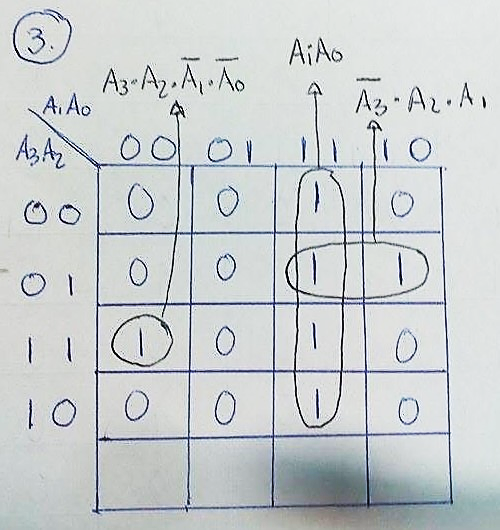 3.
A3·A2·A̅1·A̅0
A1A0
A̅3·A2·A1
A1A0
A3A2
00 01 11 10
00 0 0 1 0
01 0 0 1 1
11 1 0 1 0
10 0 0 1 0